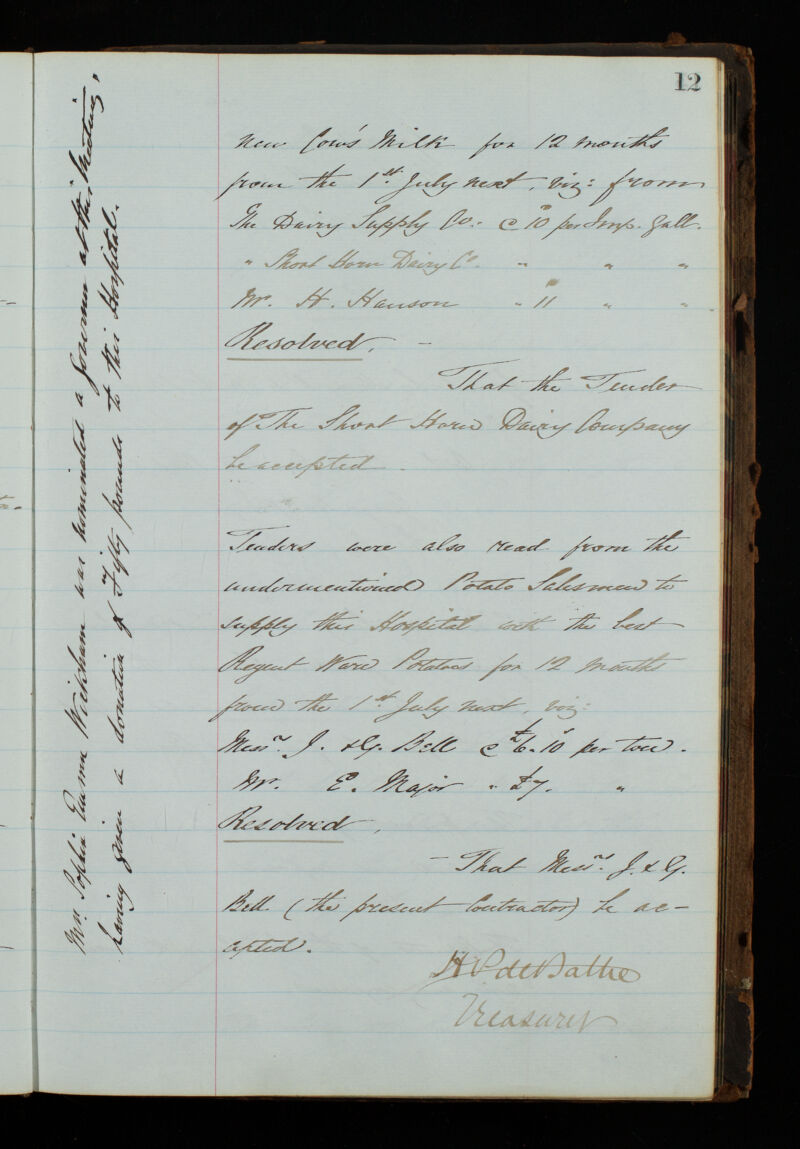 12
New Cow's Milk for 12 months
from the 1st July next, viz: from
The Dairy Supply Co: @ 10d per Imp. Gall.
" Short Horn Dairy Co. " " "
Mr. H. Hanson " 11d " "
Resolved, –
That the Tender
of The Short Horn Dairy Company
be accepted.
Tenders were also read from the
undermentioned Potato Salesmen to
supply this Hospital with the best
Regent Ware Potatoes for 12 months
from the 1st July next, viz:
Messrs. J. & G. Bell @ £6.10s per ton.
Mr. E. Major " £7. "
Resolved,
– That Messrs. J. & G.
Bell (the present Contractors) be ac-
cepted.
H P de Bathe
Treasurer
Mrs. Sophia Emma Wickham was nominated a governor at this Meeting,
having given a donation of Fifty pounds to this Hospital.